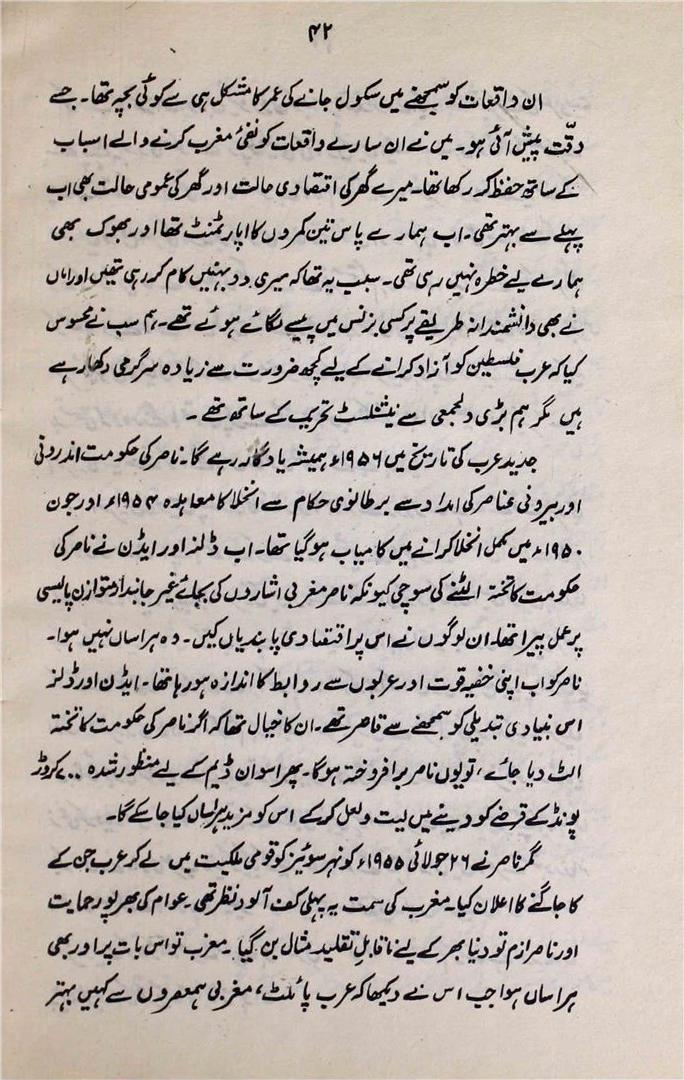 ۴۲
ان واقعات کو سمجھنے میں سکول جانے کی عمر کا مشکل ہی سے کوئی بچہ تھا۔ جسے
دقّت پیش آئی ہو۔ میں نے ان سارے واقعات کو نفئ مغرب کرنے والے اسباب
کے ساتھ حفظ کر رکھا تھا۔ میرے گھر کی اقتصادی حالت اور گھر کی عمومی حالت بھی اب
پہلے سے بہتر تھی۔ اب ہمارے پاس تین کمروں کا اپارٹمنٹ تھا اور بھوک بھی
ہمارے لیے خطرہ نہیں رہی تھی۔ سبب یہ تھا کہ میری دو بہنیں کام کر رہی تھیں اور اماں
نے بھی دانشمندانہ طریقے پر کسی بزنس میں پیسے لگائے ہوئے تھے۔ ہم سب نے محسوس
کیا کہ عرب فلسطین کو آزاد کرانے کے لیے کچھ ضرورت سے زیادہ سرگرمی دکھا رہے
ہیں مگر ہم بڑی دلجمعی سے نیشنلسٹ تحریک کے ساتھ تھے۔
جدید عرب کی تاریخ میں ۱۹۵۶ء ہمیشہ یادگار رہے گا۔ ناصر کی حکومت اندرونی
اور بیرونی عناصر کی امداد سے برطانوی حکام سے انخلا کا معاہدہ ۱۹۵۴ء اور جون
۱۹۵۰ء میں مکمل انخلا کرانے میں کامیاب ہو گیا تھا۔ اب ڈلز اور ایڈن نے ناصر کی
حکومت کا تختہ الٹنے کی سوچی کیونکہ ناصر مغربی اشاروں کی بجائے غیر جانبدار متوازن پالیسی
پر عمل پیرا تھا۔ ان لوگوں نے اس پر اقتصادی پابندیاں کیں۔ وہ ہراساں نہیں ہوا۔
ناصر کو اب اپنی خفیہ قوت اور عربوں سے روابط کا اندازہ ہو رہا تھا۔ ایڈن اور ڈلز
اس بنیادی تبدیلی کو سمجھنے سے قاصر تھے۔ ان کا خیال تھا کہ اگر ناصر کی حکومت کا تختہ
الٹ دیا جائے، تو یوں ناصر برافروختہ ہو گا۔ پھر اسوان ڈیم کے لیے منظور شدہ ۷۰۰ کروڑ
پونڈ کے قرضے کو دینے میں لیت و لعل کر کے اس کو مزید ہراساں کیا جا سکے گا۔
مگر ناصر نے ۲۶ جولائی ۱۹۵۵ء کو نہر سوئیز کو قومی ملکیت میں لے کر عرب جن کے
کا جاگنے کا اعلان کیا۔ مغرب کی سمت یہ پہلی کف آلود نظر تھی۔ عوام کی بھرپور حمایت
اور ناصرازم تو دنیا بھر کے لیے ناقابلِ تقلید مثال بن گیا۔ مغرب تو اس بات پر اور بھی
ہراساں ہوا جب اس نے دیکھا کہ عرب پائلٹ، مغربی ہمعصروں سے کہیں بہتر